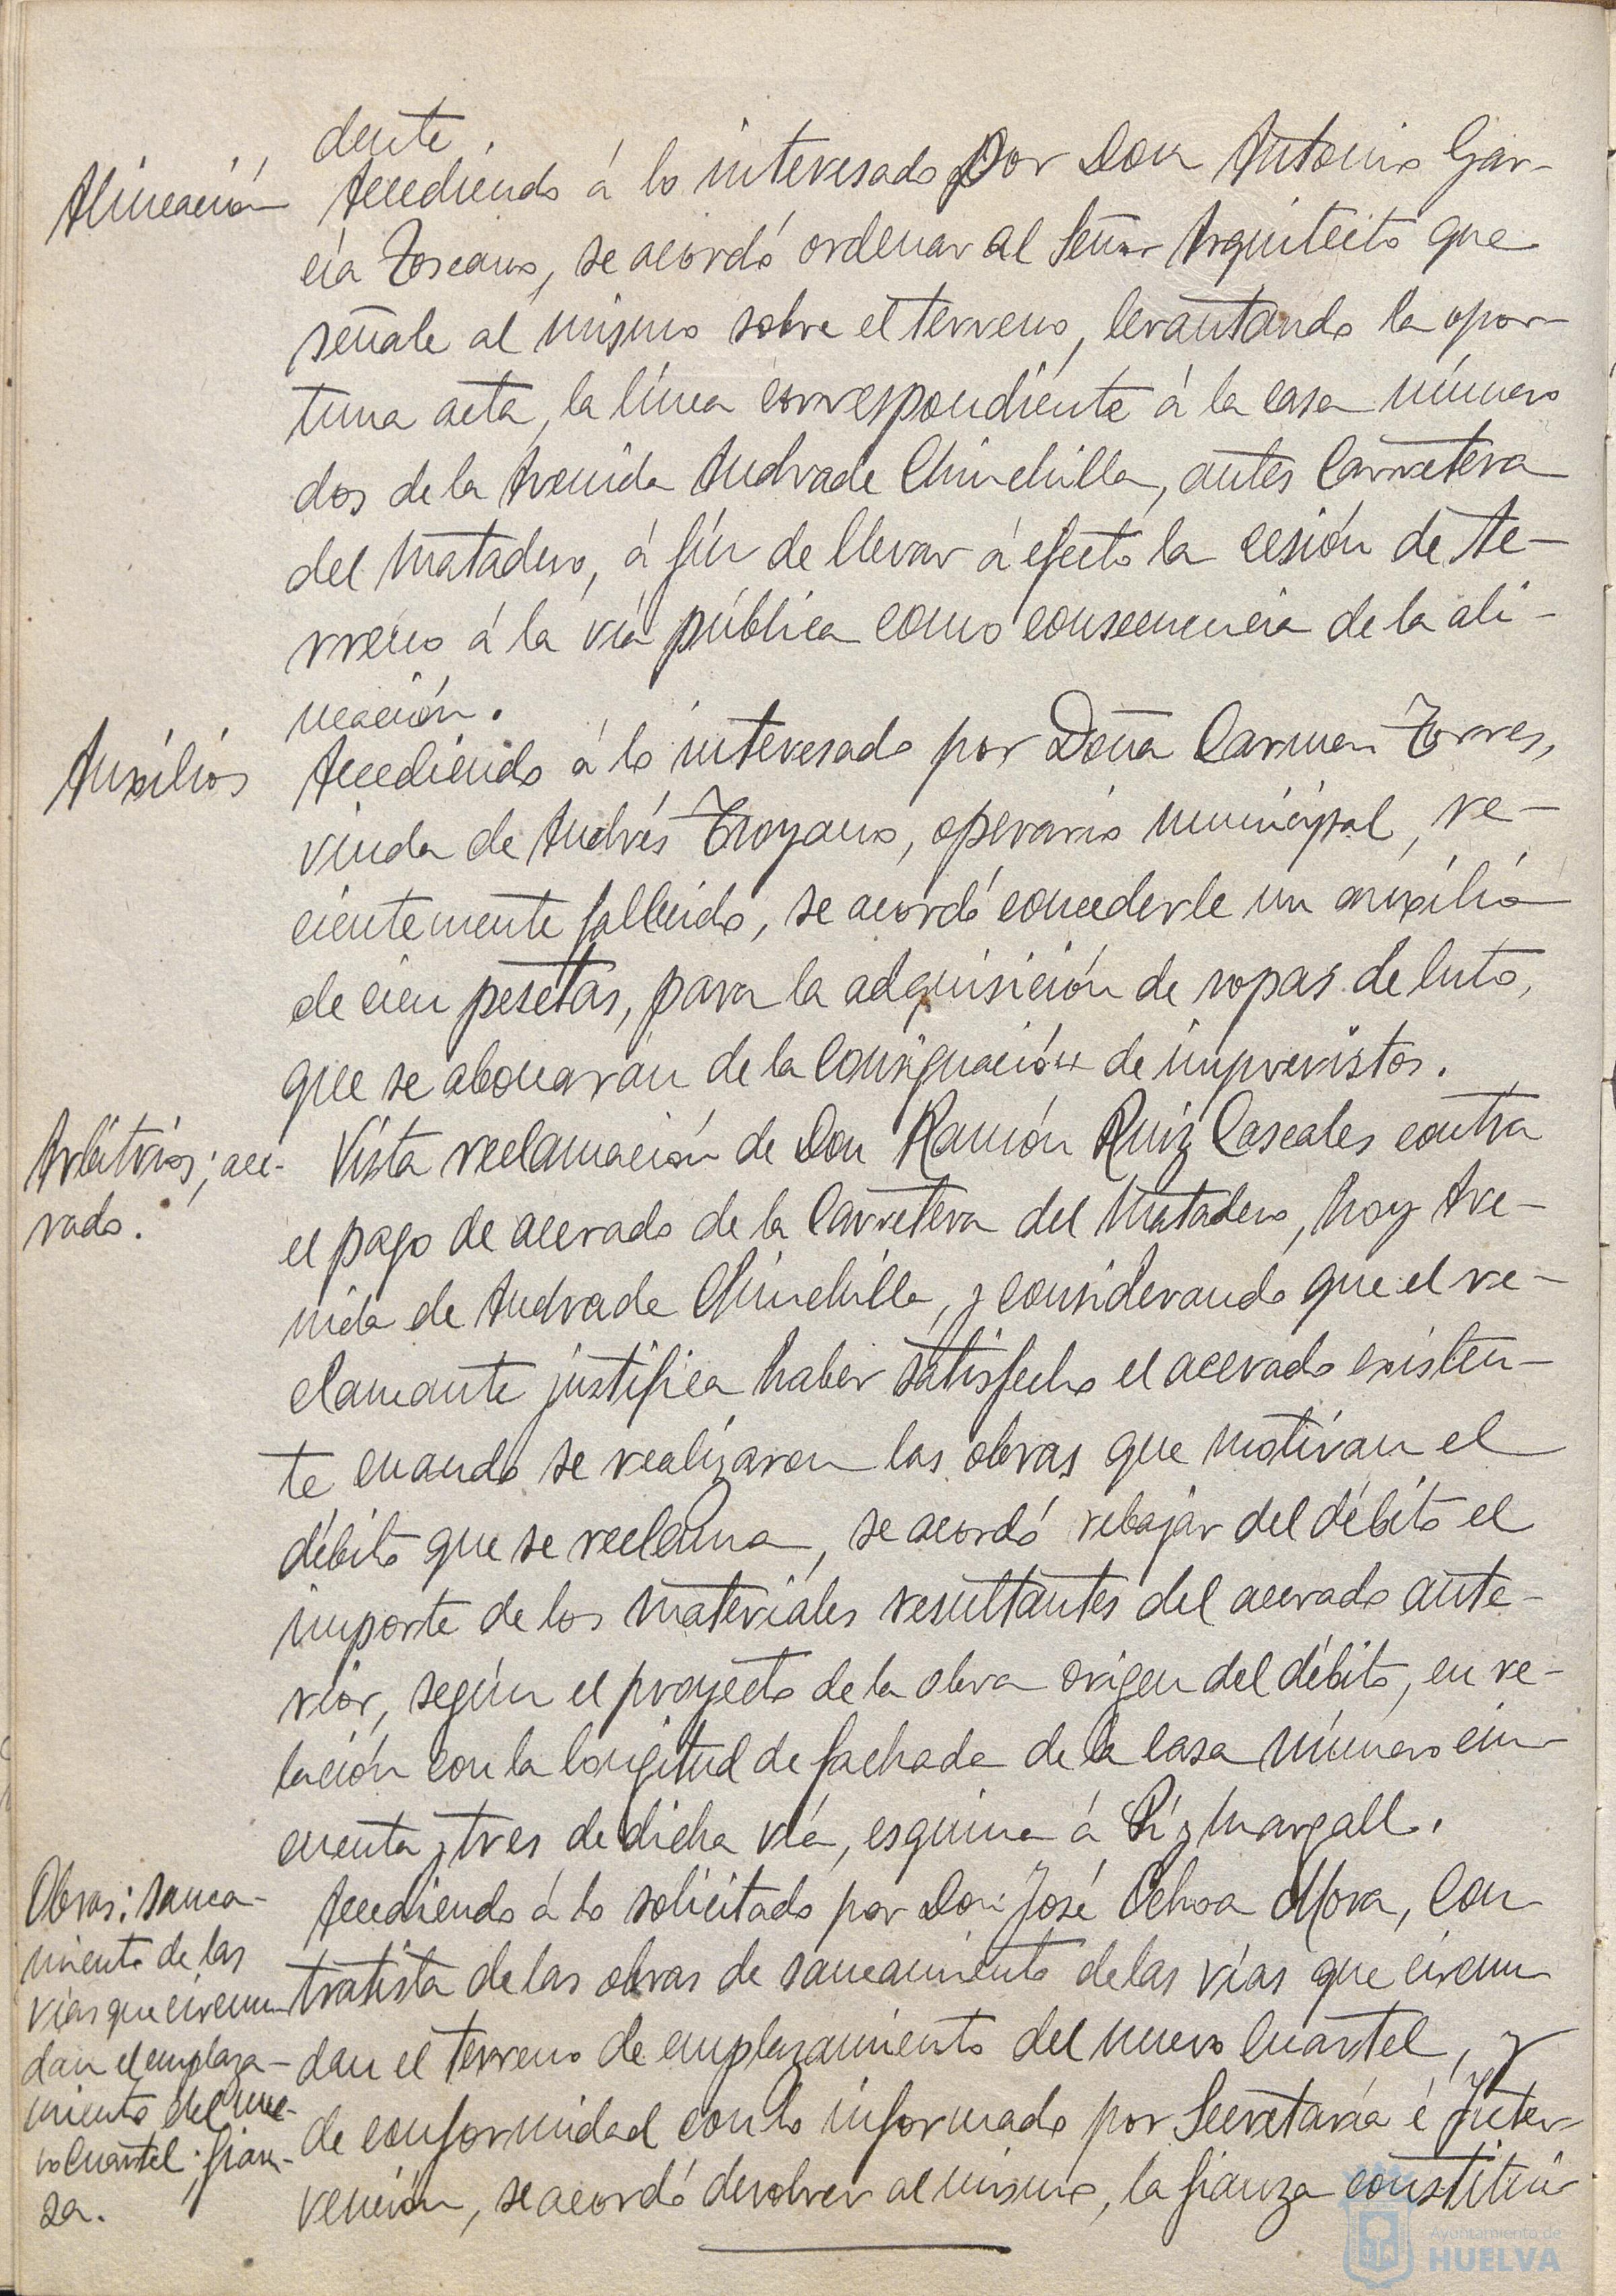 dente.
Alineación
Accediendo á lo interesado por Don Antonio Gar-
cía Toscano, se acordó ordenar al Señor Arquitecto que
señale al mismo sobre el terreno, levantando la opor-
tuna acta, la línea correspondiente á la casa número
dos de la Avenida Andrade Chinchilla, antes Carretera
del Matadero, á fín de llevar á efecto la cesión de te-
rreno á la vía pública como consecuencia de la ali-
neación.
Auxilios
Accediendo á lo interesado por Doña Carmen Torres,
viuda de Andrés Troyano, operario municipal, re-
cientemente fallecido, se acordó concederle un auxilio
de cien pesetas, para la adquisición de ropas de luto,
que se abonarán de la Consignación de imprevistos.
Arbitrios; ace-
rado.
Vista reclamación de Don Ramón Ruiz Cascales contra
el pago de acerado de la Carretera del Matadero, hoy Ave-
nida de Andrade Chinchilla, y considerando que el re-
clamante justifica haber satisfecho el acerado existen-
te cuando se realizaron las obras que motivan el
débito que se reclama, se acordó rebajar del débito el
importe de los materiales resultantes del acerado ante-
rior, según el proyecto de la obra origen del débito, en re-
lación con la longitud de fachada de la casa número cin-
cuenta y tres de dicha vía, esquina á Pí y Margall.
Obras: sanea-
miento de las
vías que circun-
dan el emplaza-
miento del nue-
vo Cuartel; fian-
za.
Accediendo á lo solicitado por Don José Ochoa Mora, Con-
tratista de las obras de saneamiento de las vías que circun-
dan el terreno de emplazamiento del nuevo Cuartel, y
de conformidad con lo informado por Secretaría é Inter-
vención, se acordó devolver al mismo, la fianza constitui-
Ayuntamiento de
HUELVA